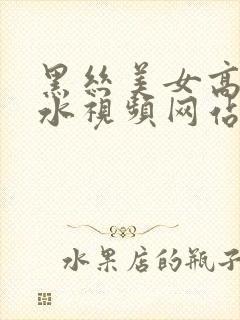 黑丝美女高
水視頻网佔
水果店的瓶子